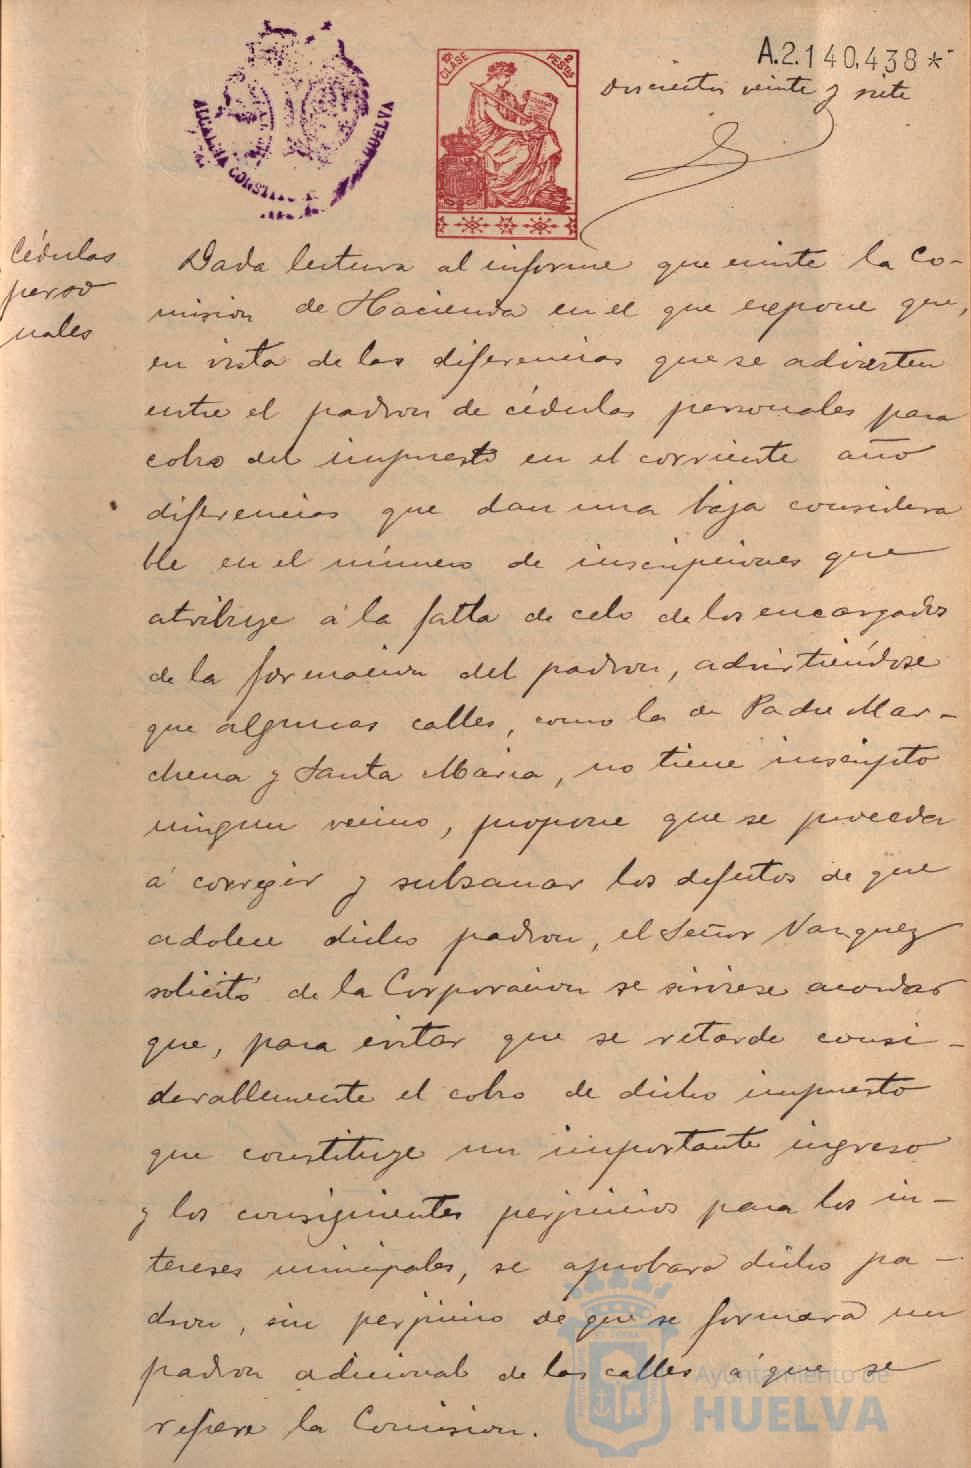 A.2.140,438*
10ª CLASE
2 PESTAS
doscientos veinte y siete
ALCALDIA CONSTI HUELVA
Cédulas
perso
nales
Dada lectura al informe que emite la Co-
mision de Hacienda en el que expone que,
en vista de las diferencias que se advierten
entre el padron de cédulas personales para
cobro del impuesto en el corriente año
diferencias que dan una baja considera
ble en el número de inscripciones que
atribuye á la falta de celo de los encargados
de la formacion del padron, advirtiéndose
que algunas calles, como la de Padre Mar-
chena y Santa Maria, no tiene inscripto
ningun vecino, propone que se proceda
á corregir y subsanar los defectos de que
adolece dicho padron, el Señor Vazquez
solicitó de la Corporacion se sirviese acordar
que, para evitar que se retarde consi-
derablemente el cobro de dicho impuesto
que constituye un importante ingreso
y los consiguientes perjuicios para los in-
tereses municipales, se aprobara dicho pa-
dron, sin perjuicio de que se formara un
padron adicional de las calles á que se
refiere la Comision.
Ayuntamiento de
HUELVA